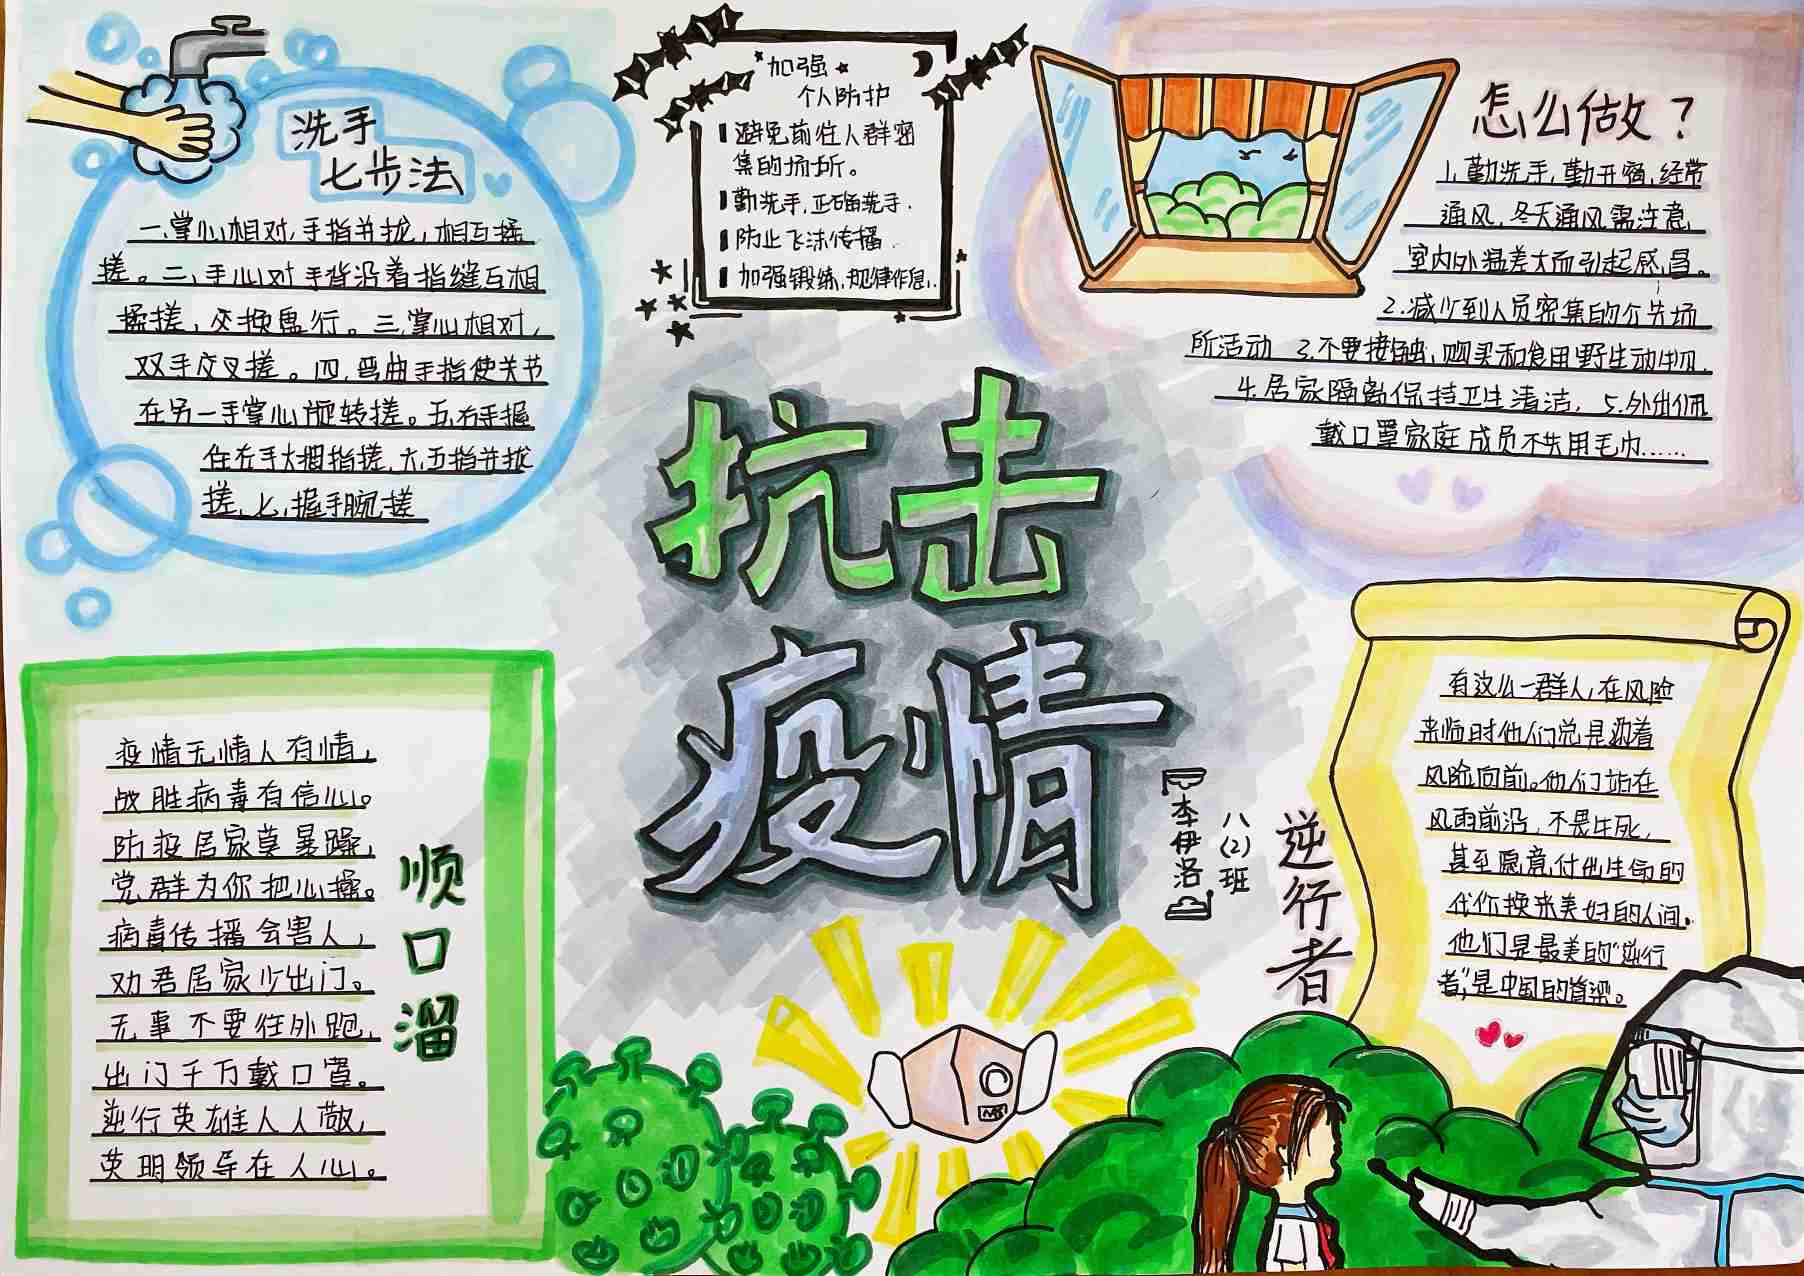 洗手
七步法
一、掌心相对,手指并拢,相互揉
搓。二、手心对手背沿着指缝互相
揉搓,交换进行。三、掌心相对,
双手交叉搓。四、弯曲手指使关节
在另一手掌心旋转搓。五、右手握
住左手大拇指搓,六、五指并拢
搓、七、握手腕搓
加强
个人防护
避免前往人群密
集的场所。
勤洗手,正确洗手.
防止飞沫传播.
加强锻练,规律作息.
怎么做?
1、勤洗手,勤开窗,经常
通风,冬天通风需注意
室内外温差大而引起感冒。
2.减少到人员密集的公共场
所活动 3.不要接触、购买和食用野生动物.
4.居家隔离保持卫生清洁, 5.外出佩
戴口罩家庭成员不共用毛巾……
抗击
疫情
李伊洛
八(2)班
疫情无情人有情,
战胜病毒有信心。
防疫居家莫暴躁,
党群为你把心操。
病毒传播会害人,
劝君居家少出门。
无事不要往外跑,
出门千万戴口罩。
逆行英雄人人敬,
英明领导在人心。
顺口溜
逆行者
有这么一群人,在风险
来临时他们总是迎着
风险向前。他们站在
风雨前沿,不畏生死,
甚至愿意付出生命的
代价换来美好的人间.
他们是最美的“逆行
者”,是中国的脊梁。